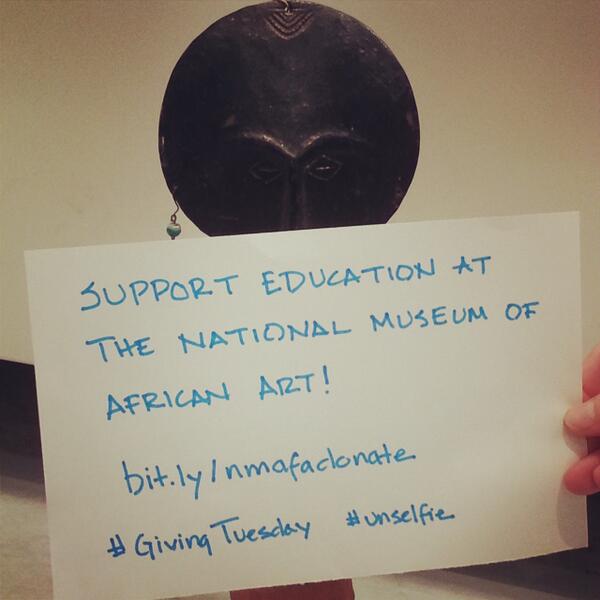 SUPPORT EDUCATION AT
THE NATIONAL MUSEUM OF
AFRICAN ART!
bit.ly/nmafadonate
#GivingTuesday #unselfie